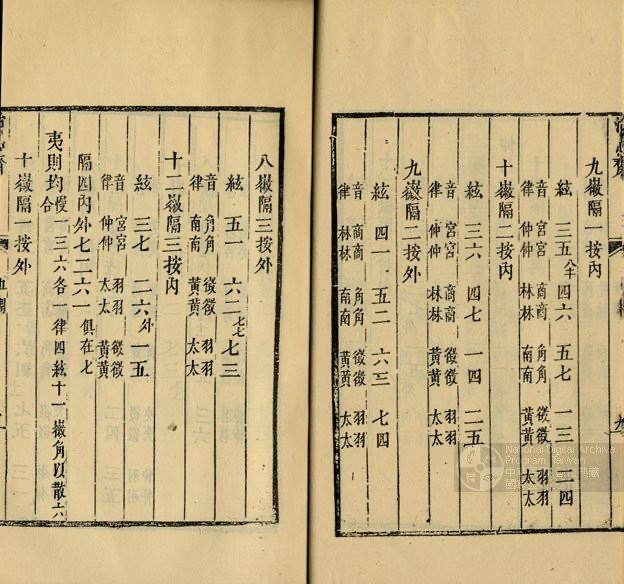 九徽隔一按內
絃 三五 八半 四六 五七 一三 二四
音 宮宮 商商 角角 徵徵 羽羽
律 仲仲 林林 南南 黃黃 太太
十徽隔二按內
絃 三六 四七 一四 二五
音 宮宮 商商 徵徵 羽羽
律 仲仲 林林 黃黃 太太
九徽隔二按外
絃 四一 五二 六三 七四
律 林林 南南 黃黃 太太
八徽隔三按外
絃 五一 六二 七七 七三
音 角角 徵徵 羽羽
律 南南 黃黃 太太
十二徽隔三按內
絃 三七 二六外 一五
音 宮宮 羽羽 徵徵
律 仲仲 太太 黃黃
隔四內外七二六一 俱在七
夷則均 合慢一三六各一律四絃十一徽角以散六
十一徽隔一按外
National Digital Archive
Program, Taiwan